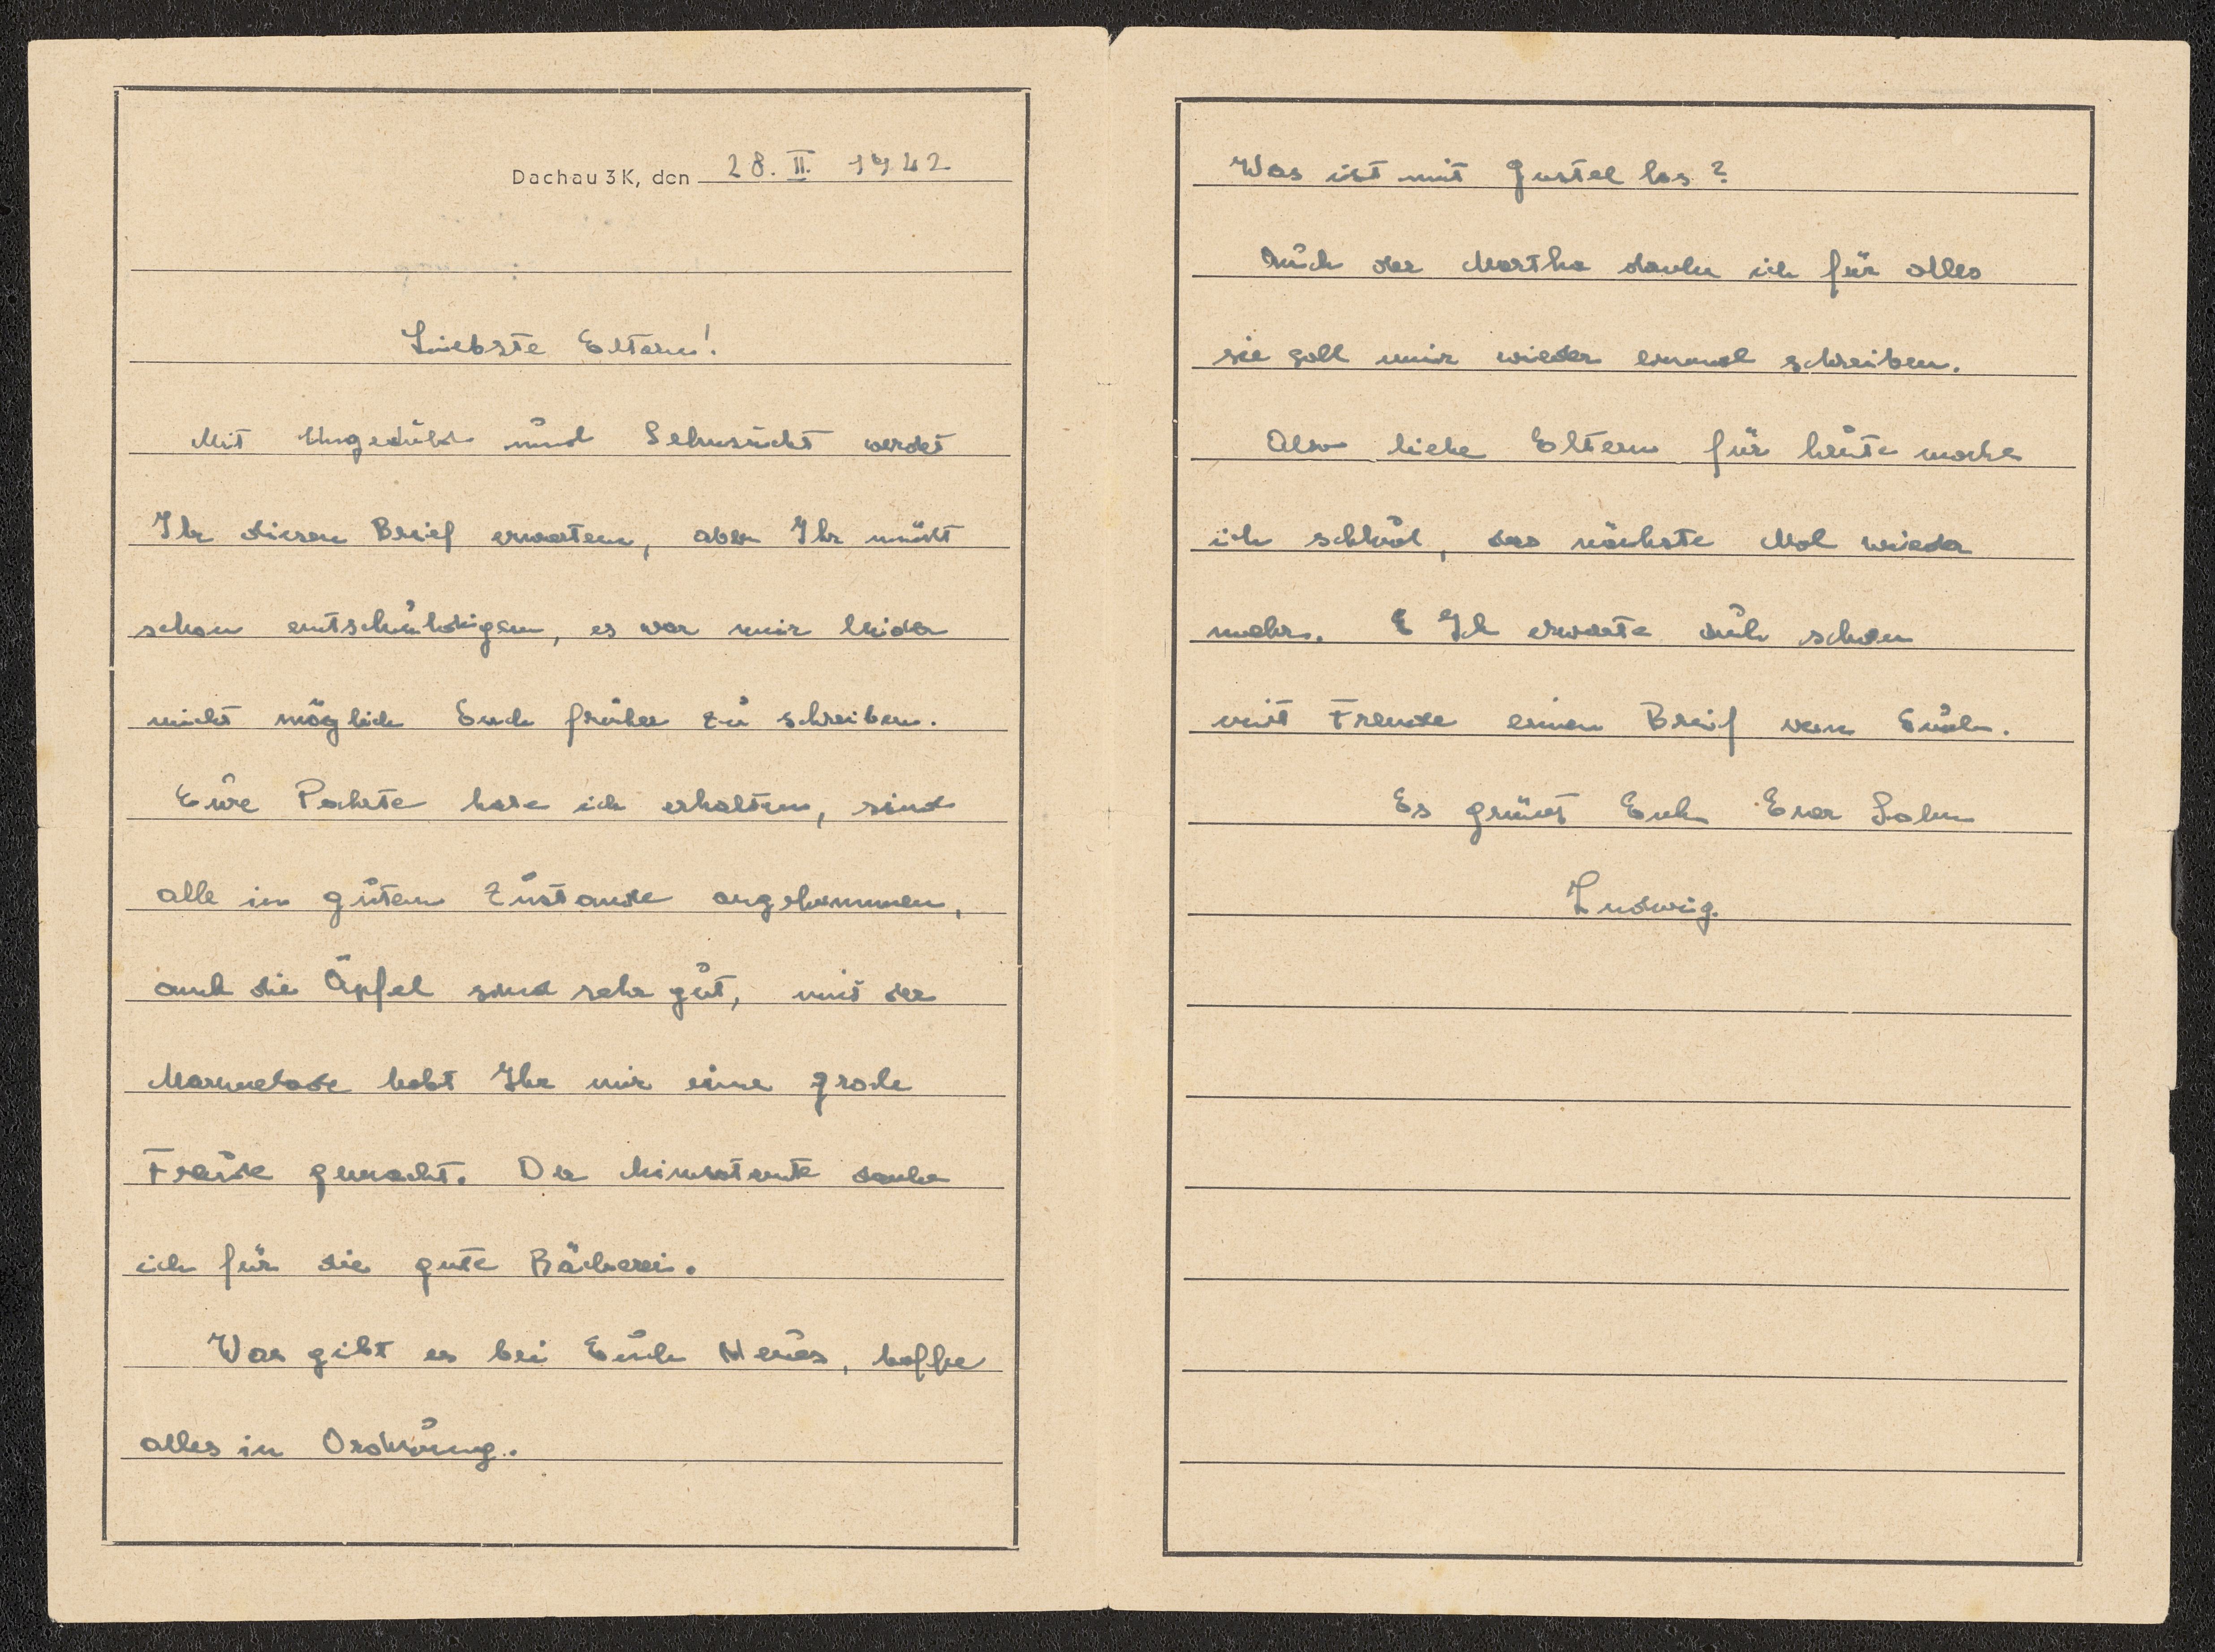 Dachau 3 K, den 28. II. 1942
Liebste Eltern!
Mit Ungeduld und Sehnsucht werdet
Ihr diesen Brief erwarten, aber Ihr müßt
schon entschuldigen, es war mir leider
nicht möglich Euch früher zu schreiben.
Eure Pakete habe ich erhalten, sind
alle in gutem Zustande angekommen,
auch die Äpfel sind sehr gut, mit der
Marmelade habt Ihr mir eine große
Freude gemacht. Der danke
ich für die gute Bäckerei.
Was gibt es bei Euch Neues, hoffe
alles in Ordnung.
Was ist mit Gustel los?
Auch der Martha danke ich für alles
sie soll mir wieder einmal schreiben.
Also liebe Eltern für heute mache
ich schluß, das nächste Mal wieder
mehr. Ich erwarte auch schon
mit Freude einen Brief von Euch.
Es grüßt Euch Euer Sohn
Ludwig.